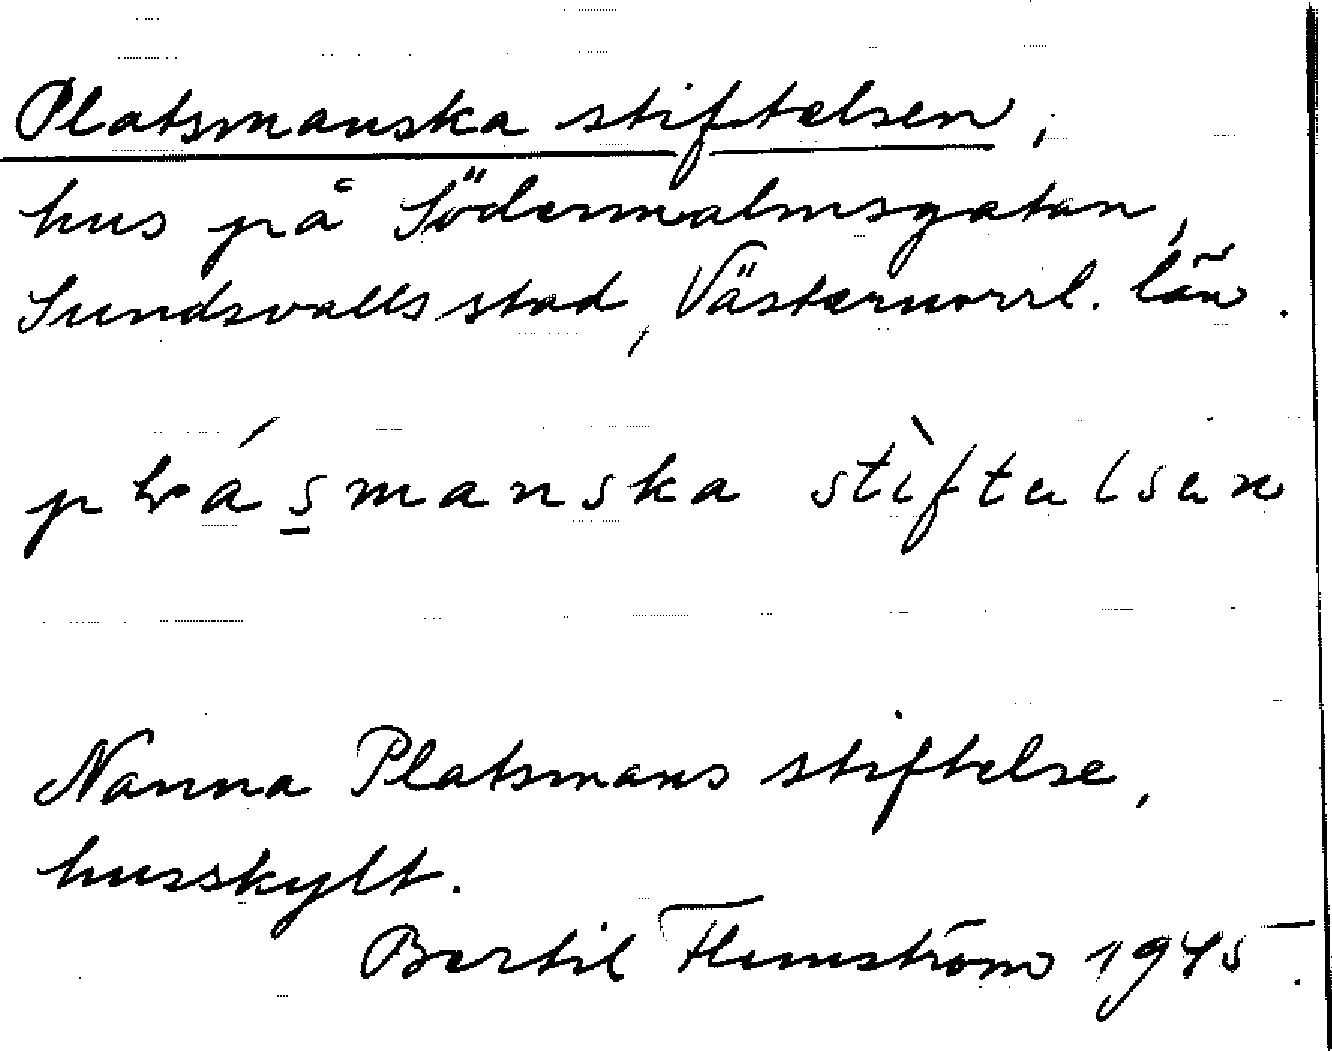 Platsmanska stiftelsen,
hus på Södermalmsgatan,
Sundsvalls stad, Västernorrl. län.
plásmanska stìftelsen
Nanna Platsmans stiftelse,
husskylt.
Bertil Flemström 1945.